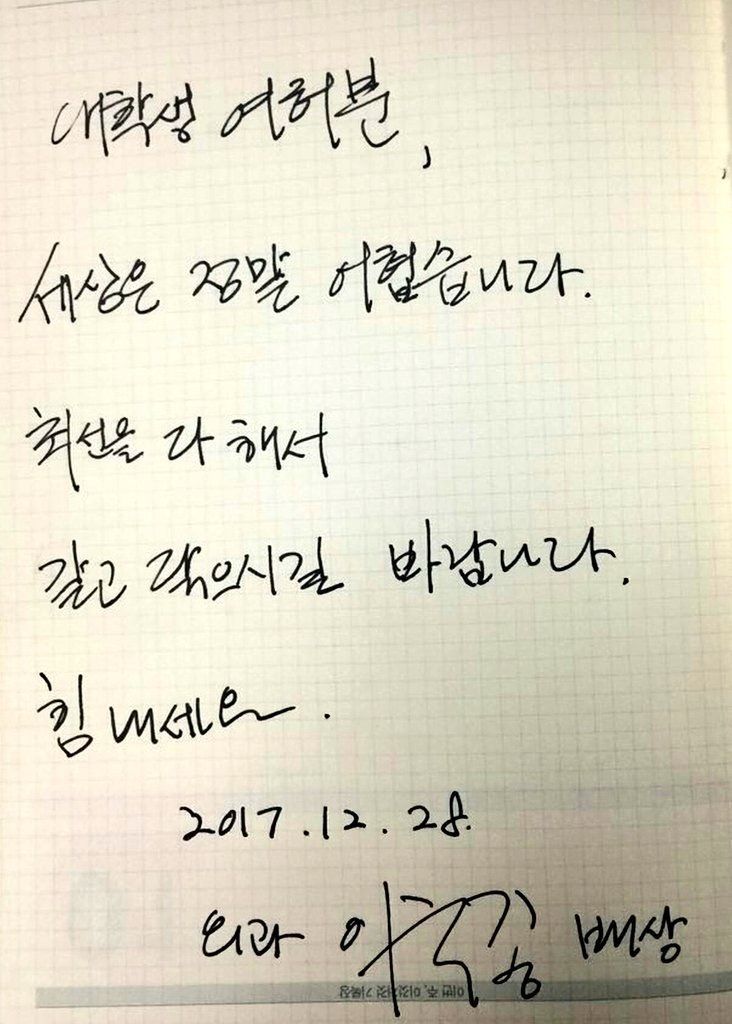 대학생 여러분,
세상은 정말 어렵습니다.
최선을 다 해서
갈고 닦으시길 바랍니다.
힘 내세요.
2017.12.28.
외과 이국종 배상